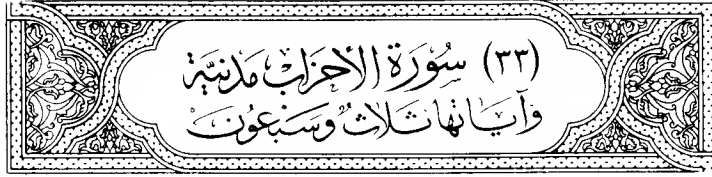 (٣٣) سُورَة الأحزَابِ مَدَنيَّة
وَآيَاتهَا ثَلاثٌ وَسَبْعُون